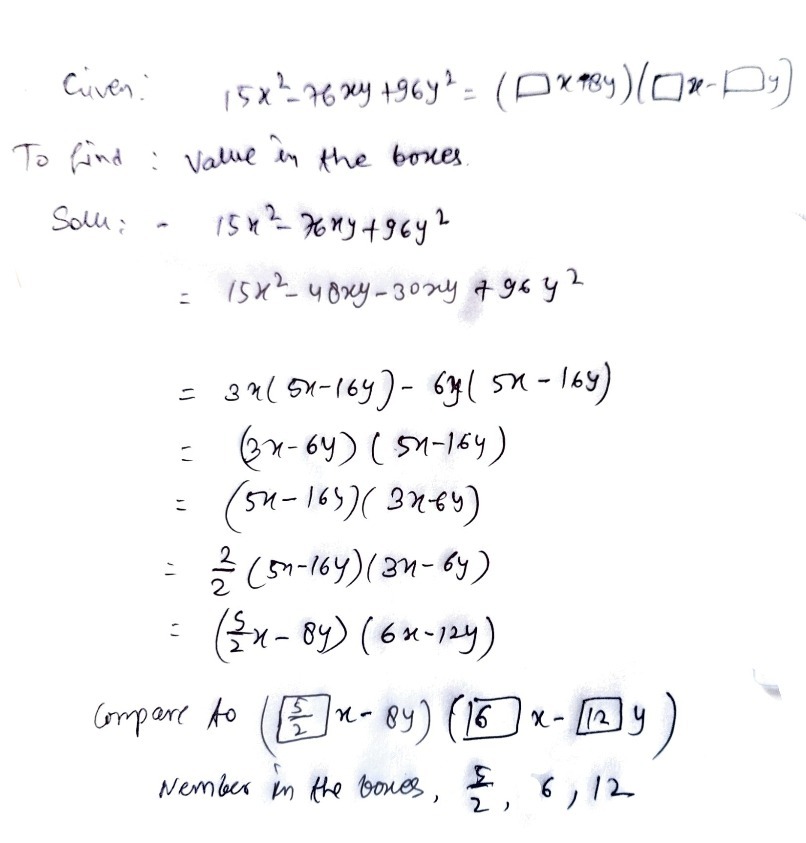 Given: 15x² - 76xy + 96y² = (□x-8y)(□x-□y)
To find : Value in the boxes.
Solu: - 15x² - 76xy + 96y²
= 15x² - 48xy - 30xy + 96y²
= 3x(5x-16y) - 6y(5x-16y)
= (3x-6y)(5x-16y)
= (5x-16y)(3x-6y)
= 2/2 (5x-16y)(3x-6y)
= (5/2 x - 8y)(6x-12y)
Compare to (5/2 x - 8y)(6 x - 12 y)
Nember in the boxes, 5/2, 6, 12